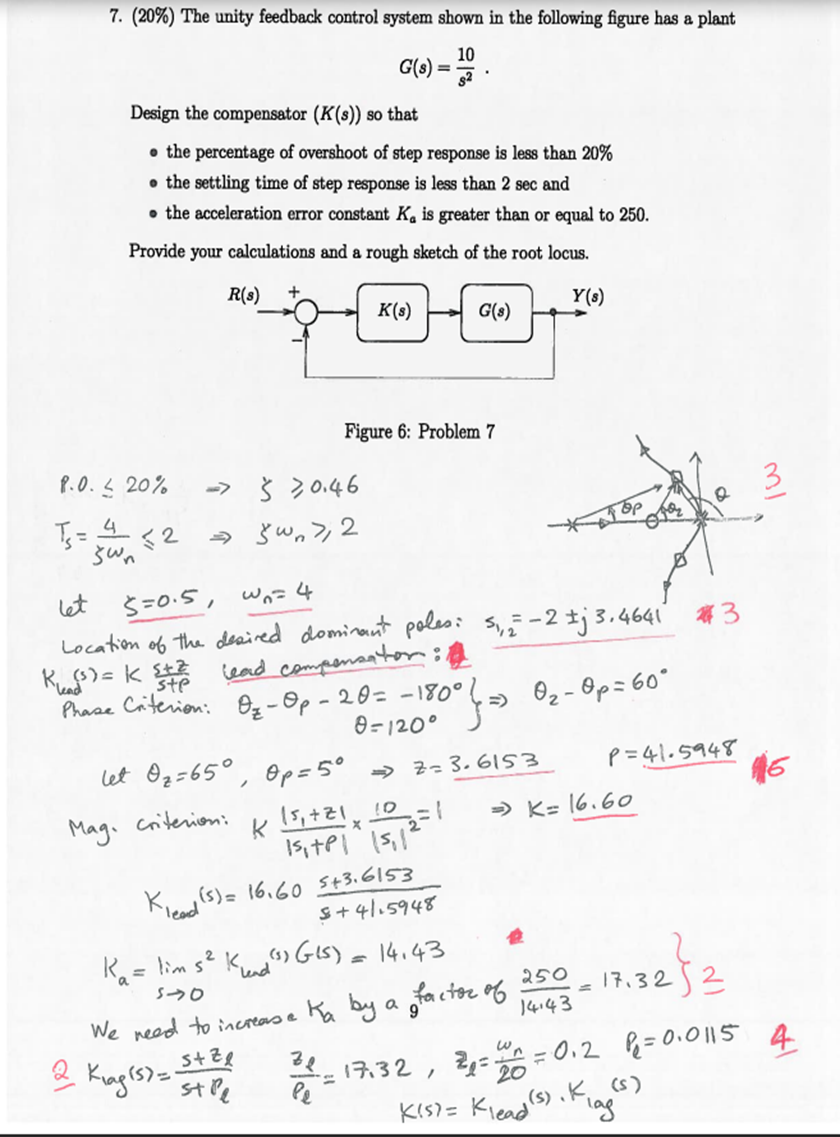 7. (20%) The unity feedback control system shown in the following figure has a plant
G(s) = 10/s² .
Design the compensator (K(s)) so that
• the percentage of overshoot of step response is less than 20%
• the settling time of step response is less than 2 sec and
• the acceleration error constant Kₐ is greater than or equal to 250.
Provide your calculations and a rough sketch of the root locus.
R(s) + − K(s) G(s) Y(s)
Figure 6: Problem 7
P.O. ≤ 20% ⇒ ξ ≥ 0.46
3
θp θz θ
Ts = 4/ξωn ≤ 2 ⇒ ξωn ≥ 2
Let ξ=0.5, ωn=4
Location of the desired dominant poles: s₁,₂ = -2 ± j 3.4641 3
Klead(s) = K (s+z)/(s+p) lead compensator:
Phase Criterion: θz - θp - 2θ = -180° } ⇒ θz - θp = 60°
θ = 120°
Let θz = 65°, θp = 5° ⇒ z = 3.6153 p = 41.5948 6
Mag. criterion: K |s₁+z|/|s₁+p| × 10/|s₁|² = 1 ⇒ K = 16.60
Klead(s) = 16.60 (s+3.6153)/(s+41.5948)
Ka = lim s→0 s² Klead(s) G(s) = 14.43
We need to increase Ka by a factor of 250/14.43 = 17.32 } 2
9
2 Klag(s) = (s+zℓ)/(s+Pℓ) zℓ/Pℓ = 17.32, zℓ = ωn/20 = 0.2 Pℓ = 0.0115 4
K(s) = Klead(s) . Klag(s)